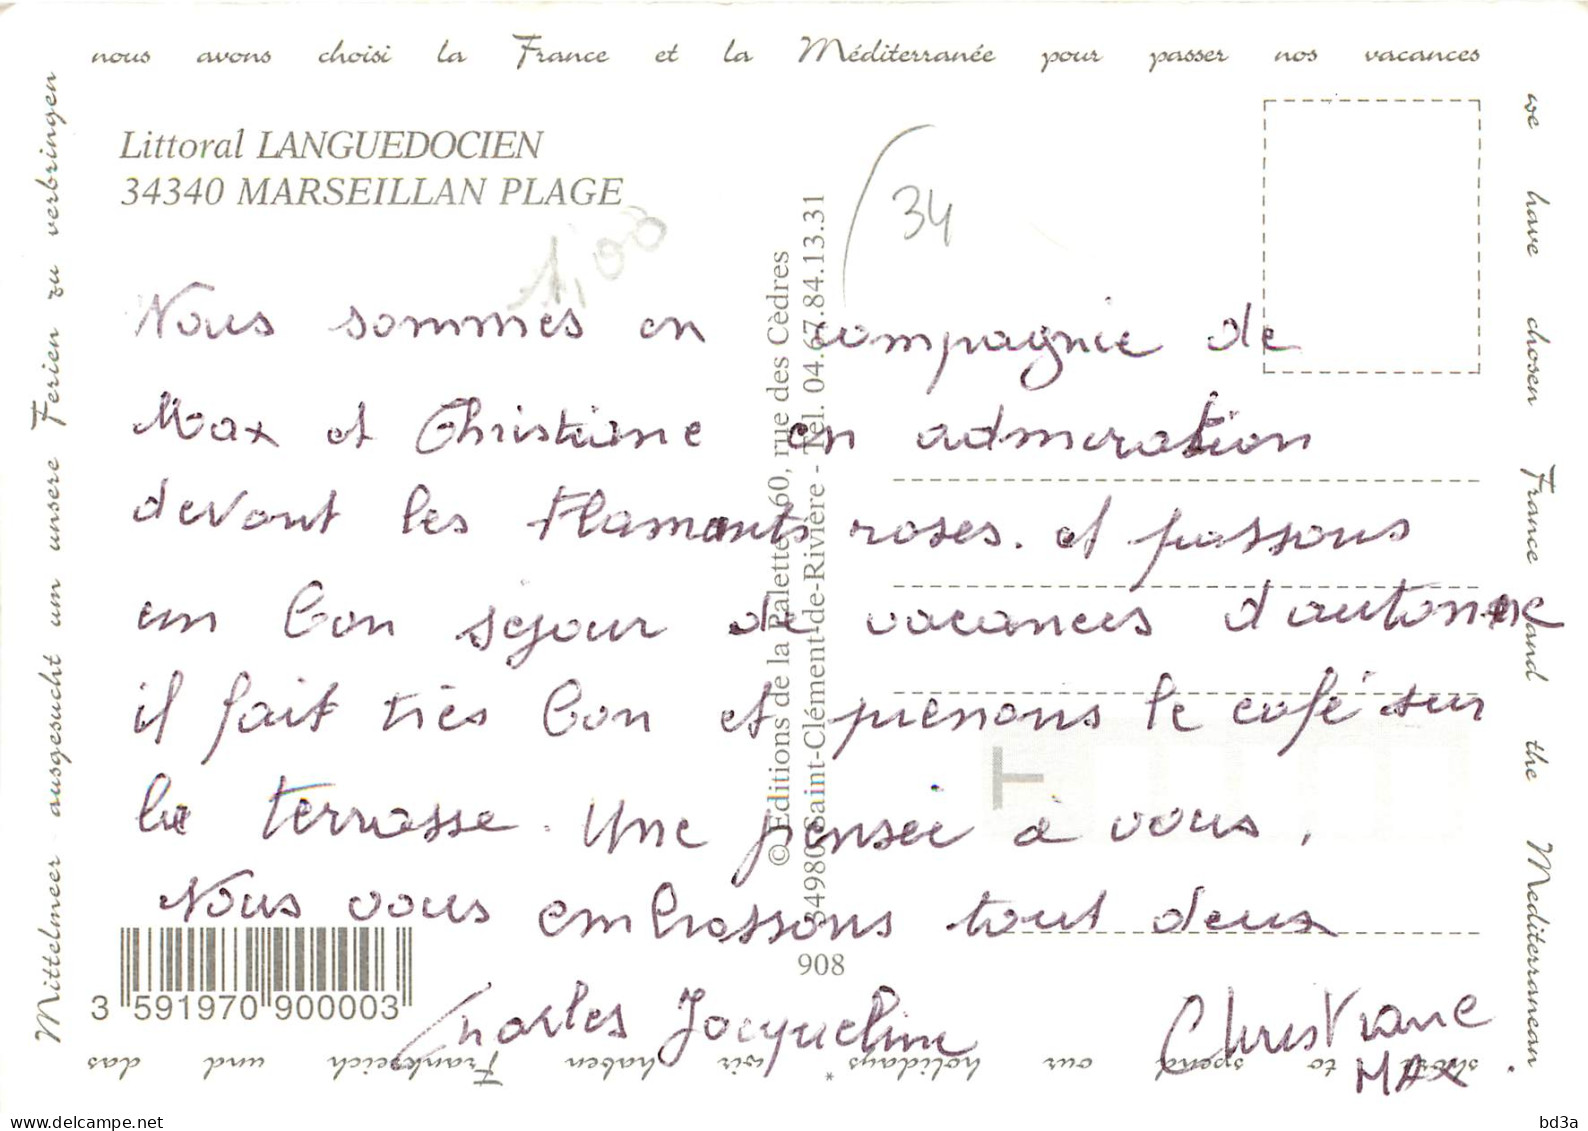 nous avons choisi la France et la Méditerranée pour passer nos vacances
we have chosen France and the Mediterranean
shore to spend our holidays * wir haben Frankreich und das
Mittelmeer ausgesucht um unsere Ferien zu verbringen
Littoral LANGUEDOCIEN
34340 MARSEILLAN PLAGE
1,00
34
© Editions de la Palette, 60, rue des Cèdres
34980 Saint-Clément-de-Rivière - Tél. 04.67.84.13.31
Nous sommes en compagnie de
Max et Christiane en admiration
devant les flamants roses. et passons
un bon sejour de vacances d'automne
il fait très bon et prenons le café sur
la terrasse. Une pensée à vous,
Nous vous embrassons tout deux
908
3 591970 900003
Charles Jacqueline Christiane
MAX.
delcampe.net
bd3a